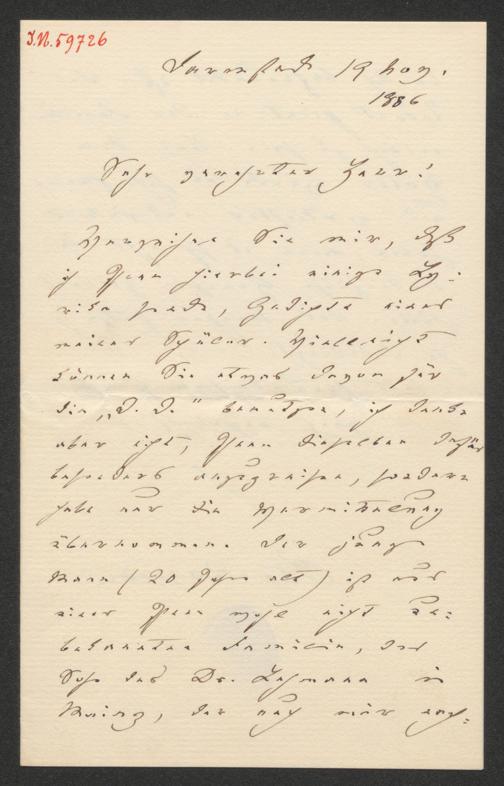 J.N. 59726
Darmstadt 19 Nov.
1886
Sehr geehrter Herr!
Verzeihen Sie mir, daß
ich Ihnen hierbei einige Ly-
rika sende, Gedichte eines
meiner Schüler. Vielleicht
können Sie etwas davon für
die „D. D." benutzen, ich denke
aber nicht, Ihnen dieselben dafür
besonders anzupreisen, sondern
habe nur die Vermittelung
übernommen. Der junge
Mann (20 Jahre alt) ist aus
einer Ihnen wohl nicht un-
bekannten Familie, der
Sohn des Dr. Lehmann in
Mainz, der auch mir